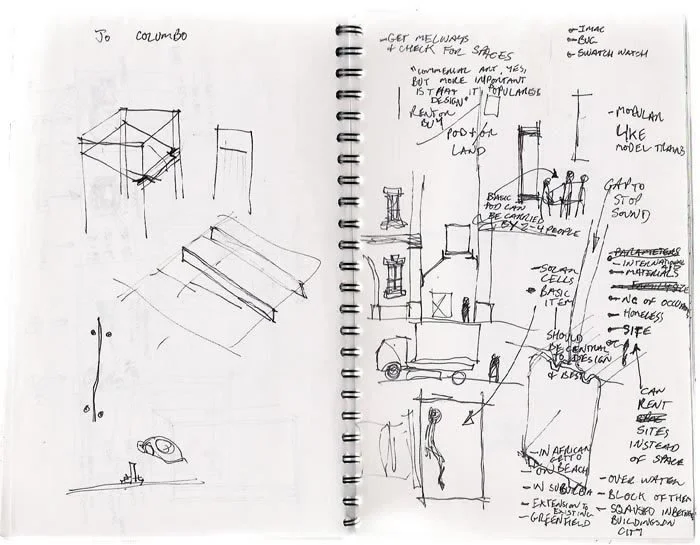 Jo COLUMBO
- GET MELWAYS
& CHECK FOR SPACES
"COMMERCIAL ART, YES,
BUT MORE IMPORTANT
IS THAT IT POPULARISES
DESIGN"
RENT OR
BUY
POD + OR
LAND
- IMAC
- BUG
- SWATCH WATCH
- MODULAR
LIKE
MODEL TRAINS
GAP TO
STOP
SOUND
BASIC
POD CAN
BE CARRIED
BY 2-4 PEOPLE
- SOLAR
CELLS
BASIC
ITEM
SHOULD
BE CENTRAL
TO DESIGN
& BEST
PARAMETERS
- INTERNATIONAL
- MATERIALS
- NO OF OCCUPANTS
- HOMELESS
- SITE
CAN
RENT
SITES
INSTEAD
OF SPACE
- IN AFRICAN
GETTO
- ON BEACH
- IN SUBURBIA
- EXTENSION TO
EXISTING
- GREENFIELD
- OVER WATER
- BLOCK OF THEM
- SQAUSED IN BETWEEN
BUILDINGS IN
CITY